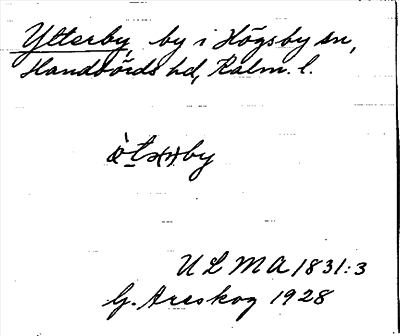 Ytterby, by i Högsby sn,
Handbörds hd, Kalm. l.
ULMA 1831:3
G. Areskog 1928